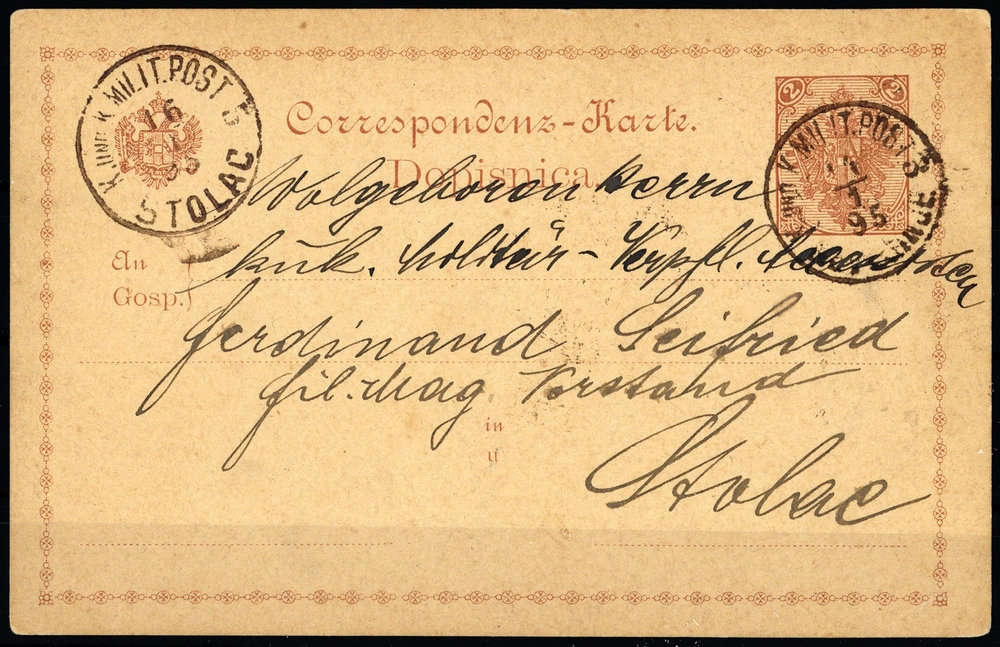 K. UND K. MILIT. POST 5
16
STOLAC
2
K. UND K. MILIT. POST
95
Correspondenz-Karte.
Dopisnica.
Wolgeboren Herrn
An
Gosp.
kuk. Militär-Verpfl.
Ferdinand Seifried
fil. Mag. Vorstand
in
u
Stolac